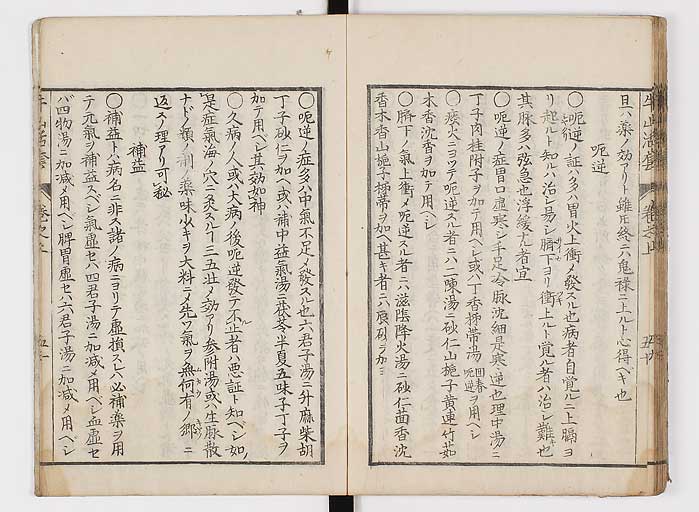 旦ハ薬ノ効アリト雖𪜈終ニハ鬼禄ニ上ルト心得ベキ也
呃逆
〇呃逆ノ証ハ多ハ胃火上衝メ發スル也病者自覚ルニ上膈ヨ
リ起ルト知ルハ治シ易シ臍下ヨリ衝上ルト覚ル者ハ治シ難也
其脉多ハ弦急也浮緩ナ者宜
〇呃逆ノ症胃口虚寒シ手足冷脉沈細是寒逆也理中湯ニ
丁子肉桂附子ヲ加テ用ベシ或ハ丁香柿蒂湯回春呃逆ヲ用ベシ
〇痰火ニヨツテ呃逆スル者ニハ二陳湯ニ砂仁山梔子黄連竹茹
木香沈香ヲ加テ用ベシ
〇臍下ノ氣上衝メ呃逆スル者ニハ滋陰降火湯ニ砂仁茴香沈
香木香山梔子柿蒂ヲ加ベ甚キ者ニハ辰砂ヲ加
〇呃逆ノ症多ハ中氣不足ノ發スル也六君子湯ニ升麻柴胡
丁子砂仁ヲ加ヘ或ハ補中益氣湯ニ茯苓半夏五味子丁子ヲ
加テ用ベシ其効如神
〇久病ノ人或ハ大病ノ後呃逆發テ不止者ハ悪証ト知ベシ如
是症氣海ノ穴ニ灸スルー三五壮ノ効アリ参附湯或ハ生脉散
ナドノ類ノ剤ノ薬味少キヲ大料ニメ先ツ氣ヲ無何有ノ郷ニ
返スノ理アリ可秘
補益
〇補益トハ病名ニ非ス諸ノ病ニヨリテ虚損スレハ必補薬ヲ用
テ元氣ヲ補益スベシ氣虚セハ四君子湯ニ加減メ用ベシ血虚セ
バ四物湯ニ加減メ用ベシ脾胃虚セハ六君子湯ニ加減メ用ベシ